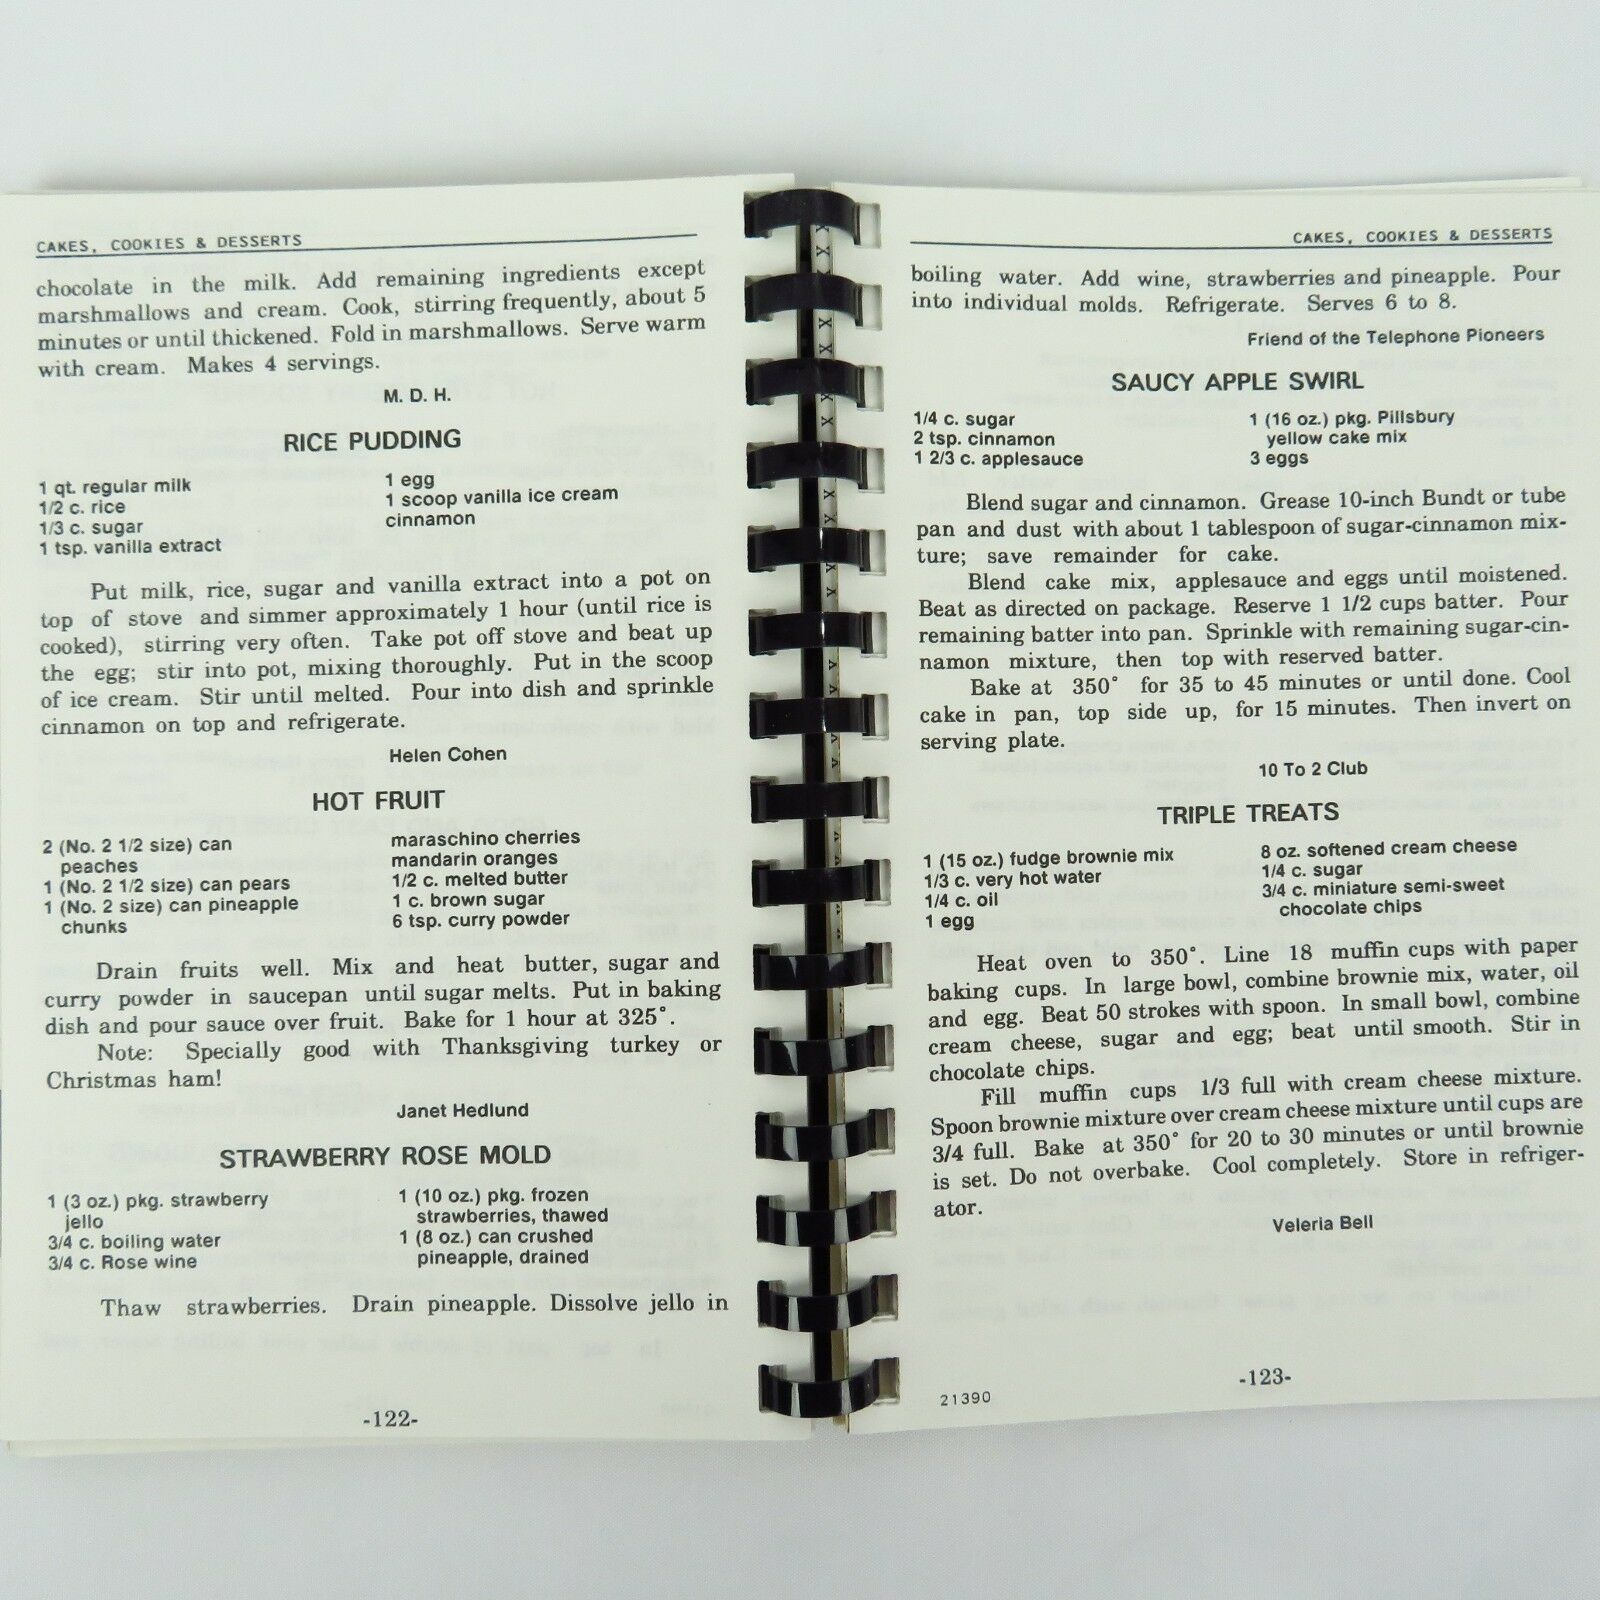 CAKES, COOKIES & DESSERTS
chocolate in the milk. Add remaining ingredients except
marshmallows and cream. Cook, stirring frequently, about 5
minutes or until thickened. Fold in marshmallows. Serve warm
with cream. Makes 4 servings.
M. D. H.
RICE PUDDING
1 qt. regular milk
1/2 c. rice
1/3 c. sugar
1 tsp. vanilla extract
1 egg
1 scoop vanilla ice cream
cinnamon
Put milk, rice, sugar and vanilla extract into a pot on
top of stove and simmer approximately 1 hour (until rice is
cooked), stirring very often. Take pot off stove and beat up
the egg; stir into pot, mixing thoroughly. Put in the scoop
of ice cream. Stir until melted. Pour into dish and sprinkle
cinnamon on top and refrigerate.
Helen Cohen
HOT FRUIT
2 (No. 2 1/2 size) can
peaches
1 (No. 2 1/2 size) can pears
1 (No. 2 size) can pineapple
chunks
maraschino cherries
mandarin oranges
1/2 c. melted butter
1 c. brown sugar
6 tsp. curry powder
Drain fruits well. Mix and heat butter, sugar and
curry powder in saucepan until sugar melts. Put in baking
dish and pour sauce over fruit. Bake for 1 hour at 325°.
Note: Specially good with Thanksgiving turkey or
Christmas ham!
Janet Hedlund
STRAWBERRY ROSE MOLD
1 (3 oz.) pkg. strawberry
jello
3/4 c. boiling water
3/4 c. Rose wine
1 (10 oz.) pkg. frozen
strawberries, thawed
1 (8 oz.) can crushed
pineapple, drained
Thaw strawberries. Drain pineapple. Dissolve jello in
-122-
CAKES, COOKIES & DESSERTS
boiling water. Add wine, strawberries and pineapple. Pour
into individual molds. Refrigerate. Serves 6 to 8.
Friend of the Telephone Pioneers
SAUCY APPLE SWIRL
1/4 c. sugar
2 tsp. cinnamon
1 2/3 c. applesauce
1 (16 oz.) pkg. Pillsbury
yellow cake mix
3 eggs
Blend sugar and cinnamon. Grease 10-inch Bundt or tube
pan and dust with about 1 tablespoon of sugar-cinnamon mix-
ture; save remainder for cake.
Blend cake mix, applesauce and eggs until moistened.
Beat as directed on package. Reserve 1 1/2 cups batter. Pour
remaining batter into pan. Sprinkle with remaining sugar-cin-
namon mixture, then top with reserved batter.
Bake at 350° for 35 to 45 minutes or until done. Cool
cake in pan, top side up, for 15 minutes. Then invert on
serving plate.
10 To 2 Club
TRIPLE TREATS
1 (15 oz.) fudge brownie mix
1/3 c. very hot water
1/4 c. oil
1 egg
8 oz. softened cream cheese
1/4 c. sugar
3/4 c. miniature semi-sweet
chocolate chips
Heat oven to 350°. Line 18 muffin cups with paper
baking cups. In large bowl, combine brownie mix, water, oil
and egg. Beat 50 strokes with spoon. In small bowl, combine
cream cheese, sugar and egg; beat until smooth. Stir in
chocolate chips.
Fill muffin cups 1/3 full with cream cheese mixture.
Spoon brownie mixture over cream cheese mixture until cups are
3/4 full. Bake at 350° for 20 to 30 minutes or until brownie
is set. Do not overbake. Cool completely. Store in refriger-
ator.
Veleria Bell
21390
-123-